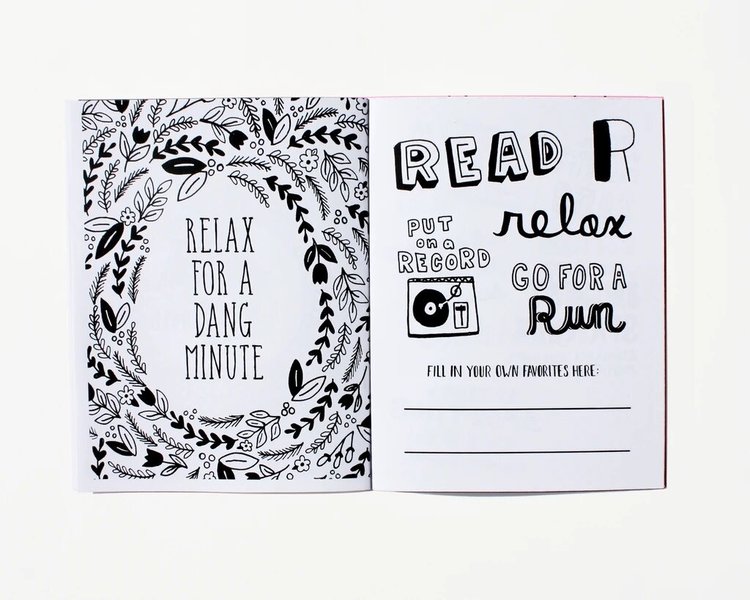 RELAX
FOR A
DANG
MINUTE
READ R
relax
PUT
on a
RECORD
GO FOR A
Run
FILL IN YOUR OWN FAVORITES HERE: